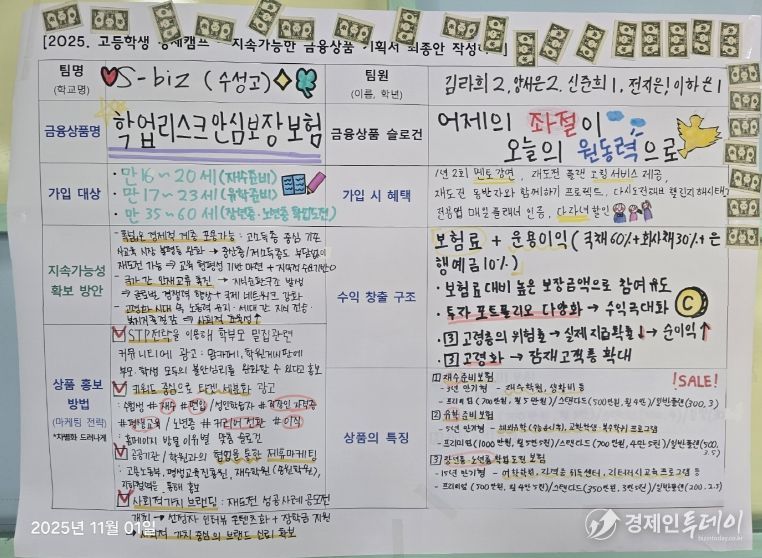 [2025. 고등학생 경제캠프 - 지속가능한 금융상품 기획서 최종안 작성
팀명
(학교명)
S-biz (수성고)
팀원
(이름, 학년)
김라희 2, 양서은 2, 신준희 1, 전지은, 이하은 1
금융상품명
학업리스크안심보장보험
금융상품 슬로건
어제의 좌절이
오늘의 원동력으로
가입 대상
· 만 16~20세 (재수준비)
· 만 17~23세 (유학준비)
· 만 35~60세 (장년층·노년층 학업도전)
가입 시 혜택
1년 2회 멘토 강연, 재도전 플랜 코칭 서비스 제공,
재도전 동반자와 함께하기 프로젝트, 다시도전
인증, 다자녀할인
지속가능성
확보 방안
- 폭넓은 경제적 계층 포용가능 : 고소득층 중심 기존
사교육 시장 불평등 완화 → 중산층/저소득층도 부담없이
재도전 가능 → 교육 형평성 기반 마련 + 지속적 수요기반
- 국가 간 인재교류 촉진 → 지식순환구조 형성
→ 글로벌 경쟁력 향상 + 국제 네트워크 강화
- 고령화 시대 속 노동력 유지 · 세대 간 지식 전승
→ 사회적 효용성↑
수익 창출 구조
보험료 + 운용이익 (국채 60%+회사채 30%+은
행예금 10%)
· 보험료 대비 높은 보장금액으로 참여 유도
· 투자 포트폴리오 다양화 → 수익극대화
· 3 고령층의 위험률 → 실제 지급확률↓ → 순이익↑
· 3 고령화 → 잠재고객층 확대
상품 홍보
방법
(마케팅 전략)
*차별화 드러나게
STP전략을 이용해 학부모 밀집관련
커뮤니티에 광고 : 맘카페, 학원게시판에
부모·학생 모두의 불안심리를 완화할 수 있다고 홍보
키워드 중심으로 타겟 세분화 광고
: 수험생 #재수 #편입 / 성인학습자 #직장인 자격증
#평생교육 / 노년층 #커리어전환 #이직
: 홈페이지 방문 이유별 맞춤 슬로건
공공기관/학원과의 협업을 통한 제휴마케팅
: 고용노동부, 평생교육진흥원, 재수학원(종로학원),
통해 홍보
사회적가치 브랜딩 : 재도전 성공사례 공모전
개최 → 선정자 인터뷰 콘텐츠화 + 장학금 지원
→ 사회적 가치 중심의 브랜드 신뢰 확보
상품의 특징
!SALE!
1 재수준비보험
- 3년 만기형 - 재수학원, 생활비 등
- 프리미엄(700만원, 월 5만원)/스탠다드(500만원, 월 4만)/일반플랜(300, 3)
2 유학 준비 보험
- 5년 만기형 - 교환학생, 복수학위 프로그램
- 프리미엄(1000만원, 월 5만 5천)/스탠다드(700만원, 4만 5천)/일반플랜(500,
3.5)
3 장년층·노년층 학업도전 보험
- 15년 만기형 - 어학학원, 자격증 취득센터, 리터러시교육프로그램 등
- 프리미엄(500만원, 월 4만 5천)/스탠다드(350만원, 3만 5천)/일반플랜(200, 2.5)
2025년 11월 01일
경제인투데이
bizntoday.co.kr